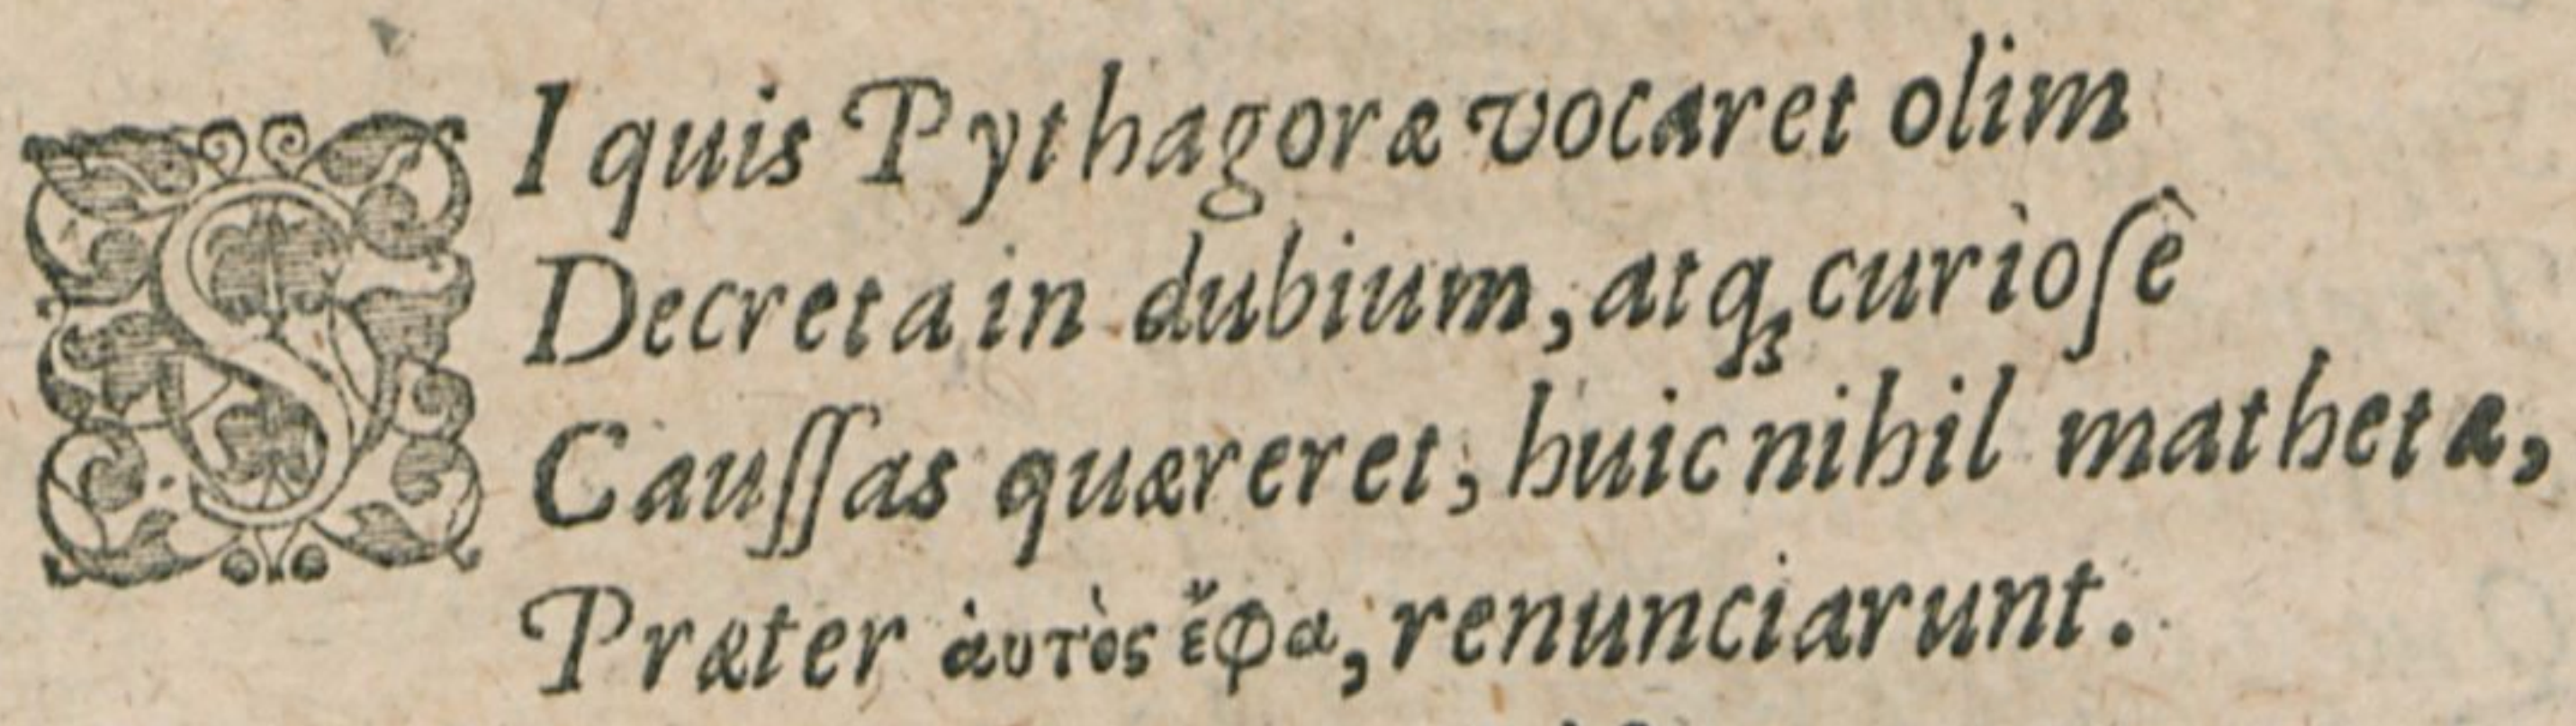 SI quis Pythagoræ vocaret olim
Decreta in dubium, atq; curiosè
Caussas quæreret, huic nihil mathetæ,
Præter ἀυτὸς ἔφα, renunciarunt.